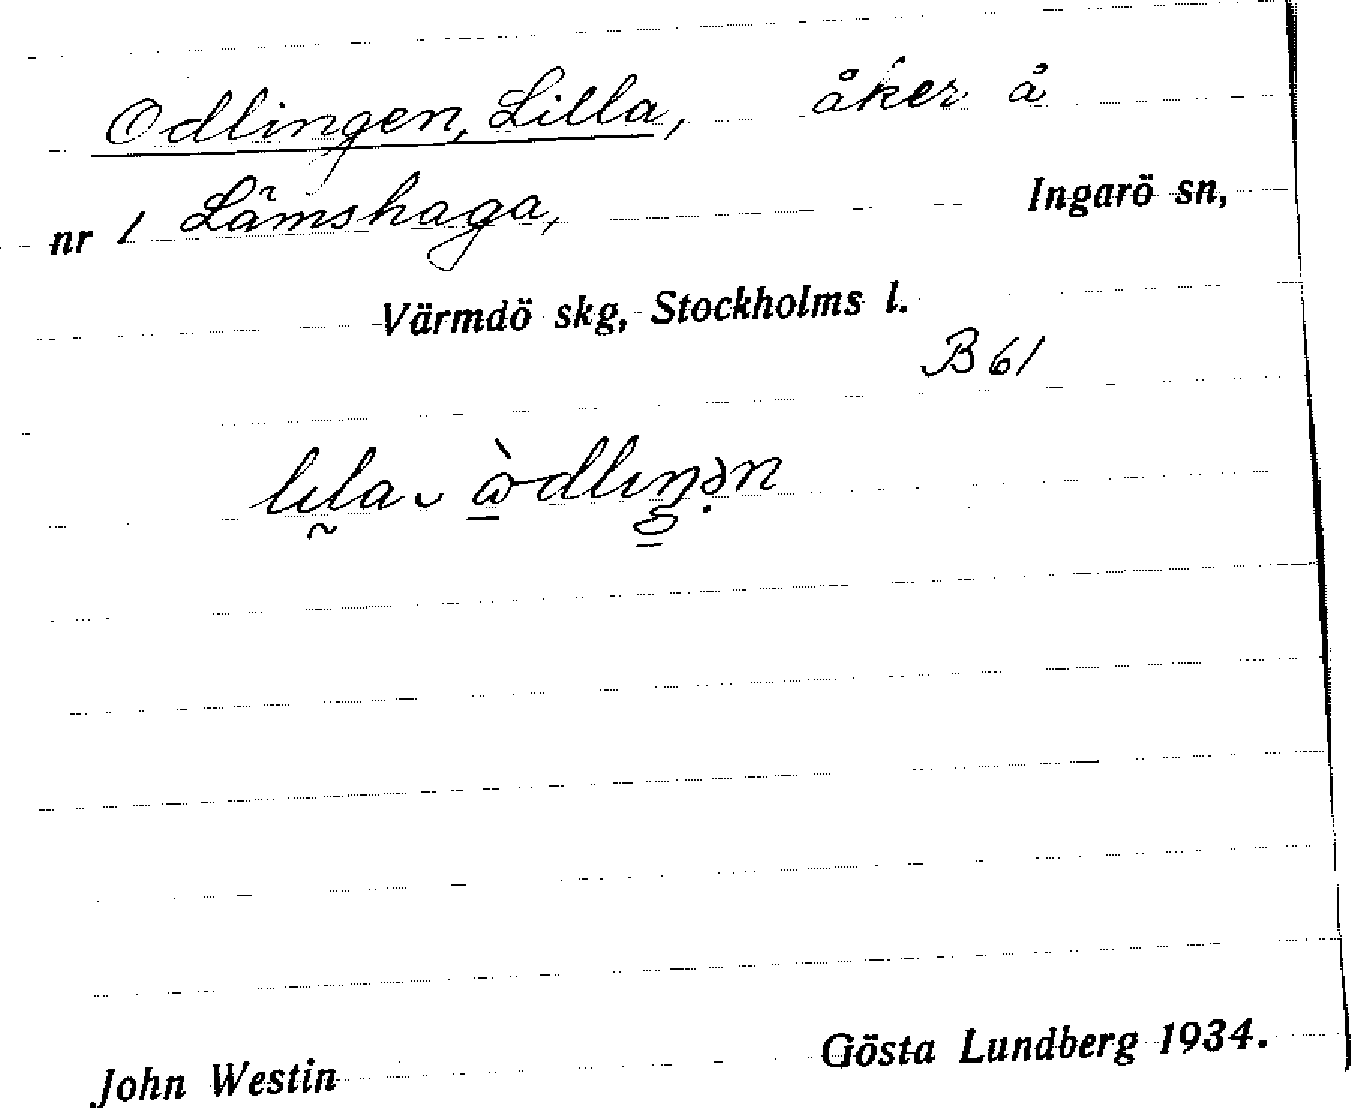 Odlingen, Lilla, åker å
nr 1 Lämshaga, Ingarö sn,
Värmdö skg, Stockholms l.
B 61
John Westin Gösta Lundberg 1934.